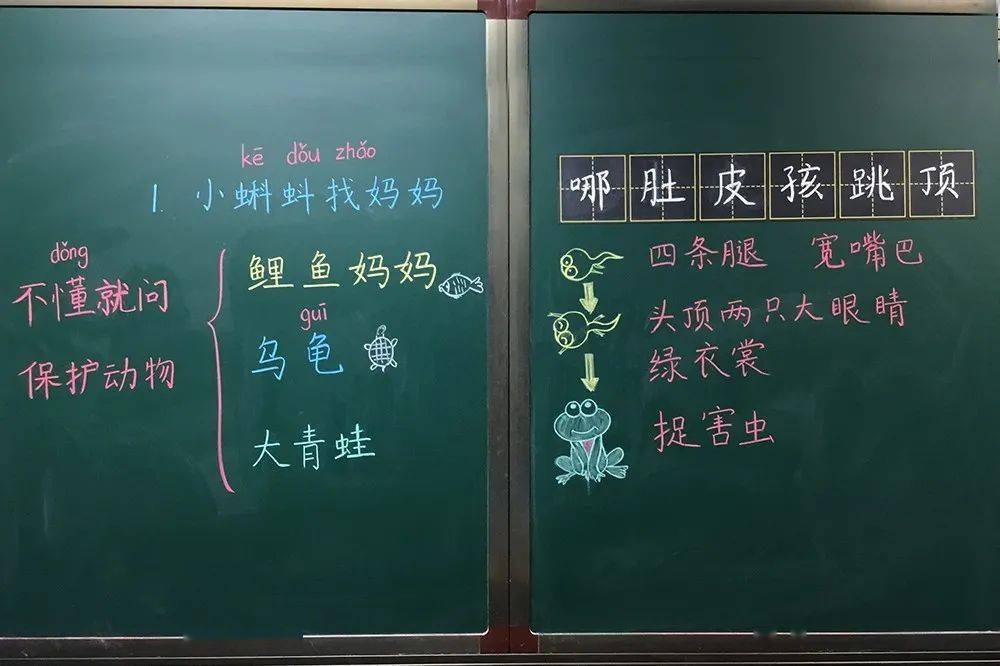 kē dǒu zhǎo
1. 小蝌蚪找妈妈
dǒng
不懂就问
保护动物
鲤鱼妈妈
guī
乌龟
大青蛙
哪肚皮孩跳顶
四条腿 宽嘴巴
头顶两只大眼睛
绿衣裳
捉害虫